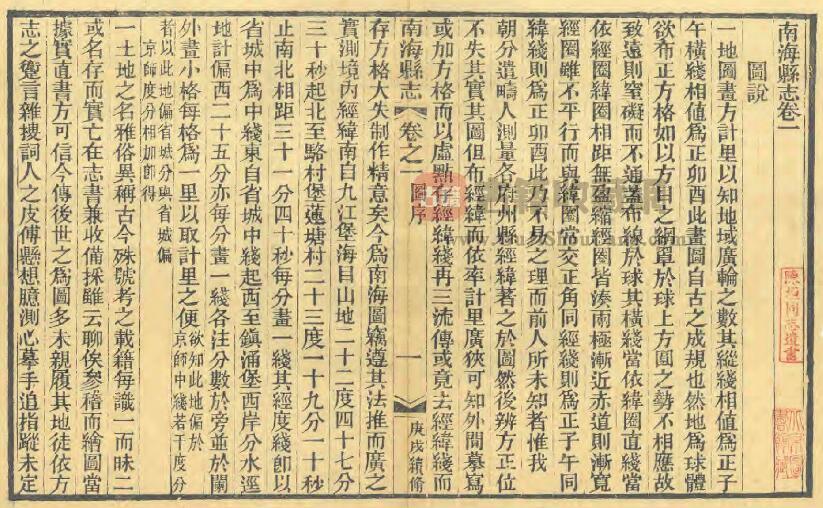 南海縣志卷一
圖說
一地圖畫方計里以知地域廣輪之數其縱綫相值爲正子
午橫綫相値爲正卯酉此畫圖自古之成規也然地爲球體
欲布正方格如以方目之網罩於球上方圓之勢不相應故
致遠則窒礙而不通蓋布線於球其橫綫當依緯圈直綫當
依經圈緯圈相距無盈縮經圈皆湊兩極漸近赤道則漸寬
經圈雖不平行而與緯圈當交正角同經綫則爲正子午同
緯綫則爲正卯酉此乃不易之理而前人所未知者惟我
朝分遣疇人測量各府州縣經緯著之於圖然後辨方正位
不失其實其圖但布經緯而依率計里廣狹可知外間摹寫
或加方格而以虛點存經緯綫再三流傳或竟去經緯綫而
南海縣志
卷之一
圖序
一
庚戌續修
存方格大失制作精意矣今爲南海圖竊遵其法推而廣之
實測境內經緯南自九江堡海目山地二十二度四十七分
三十秒起北至駱村堡蓮塘村二十三度一十九分一十秒
止南北相距三十一分四十秒每分畫一綫其經度綫卽以
省城中爲中綫東自省城中綫起西至鎭涌堡西岸分水逕
地計偏西二十五分亦每分畫一綫各注分數於旁並於闌
外畫小格每格爲一里以取計里之便欲知此地偏於
京師中綫若干度分
者以此地偏省城分與省城偏
京師度分相加卽得
一土地之名雅俗異稱古今殊號考之載籍每識一而昧二
或名存而實亡在志書兼收備採雖云聊俟參稽而繪圖當
據實直書方可信今傳後世之爲圖多未親履其地徒依方
志之躗言雜搜詞人之皮傅懸想臆測心摹手追指蹤未定